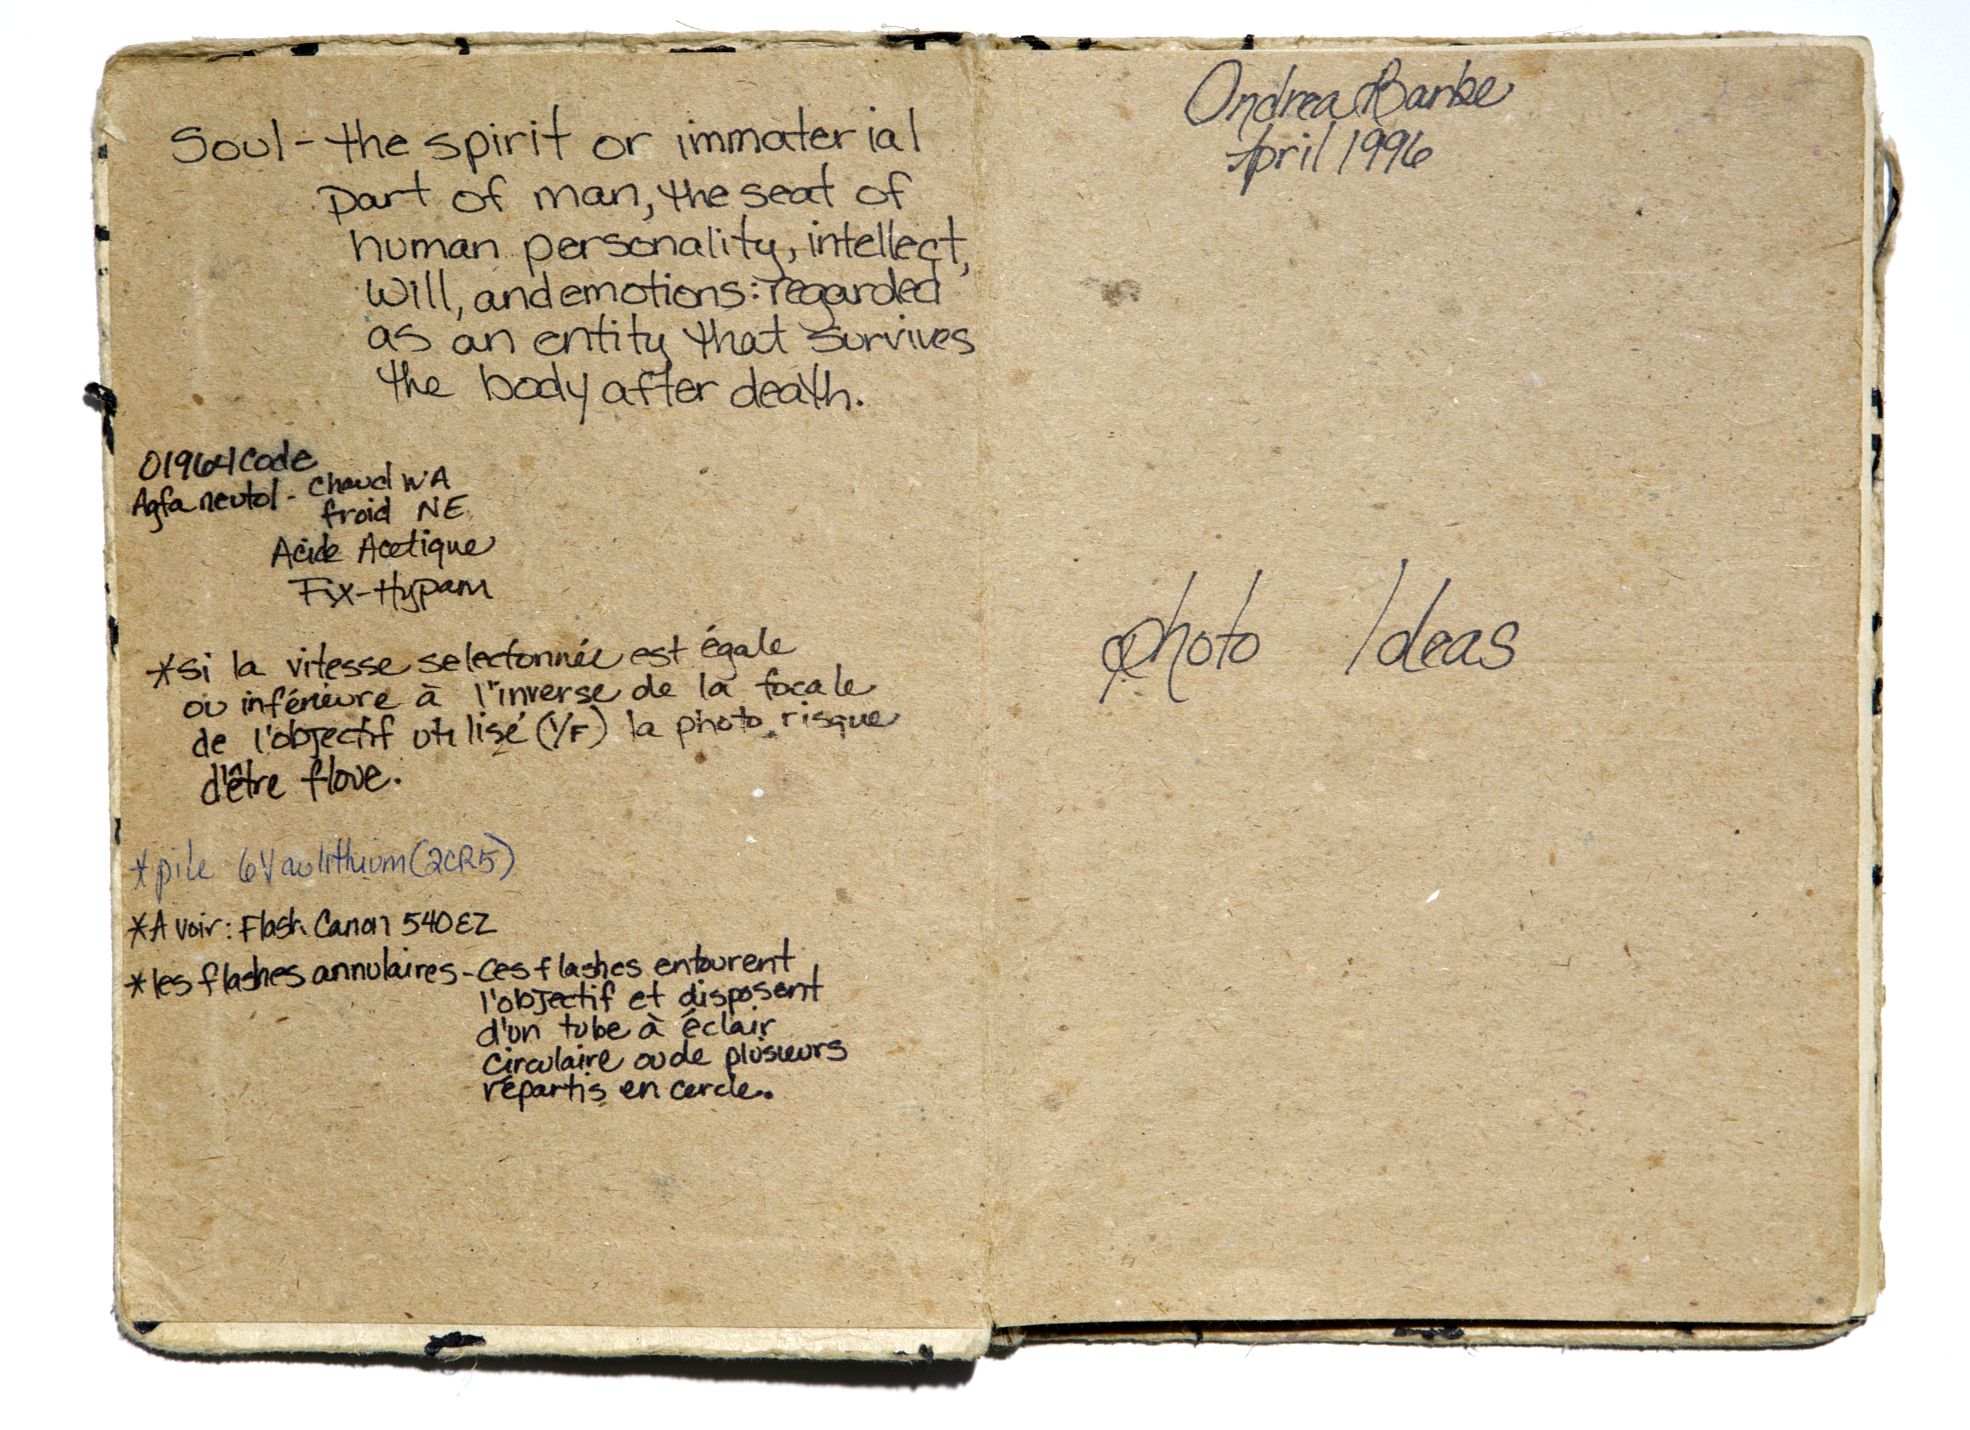 Soul - the spirit or immaterial
part of man, the seat of
human personality, intellect,
will, and emotions: regarded
as an entity that survives
the body after death.
01964 Code
Agfa neutol - chaud WA
froid NE
Acide Acetique
Fix-Hypam
*si la vitesse selectonnée est égale
ou inférieure à l'inverse de la focale
de l'objectif utilisé (1/F) la photo risque
d'être floue.
*pile 6V au lithium (2CR5)
*A voir: Flash Canon 540EZ
*les flashes annulaires - Ces flashes entourent
l'objectif et disposent
d'un tube à éclair
circulaire ou de plusieurs
répartis en cercle.
Ondrea Barbe
April 1996
photo Ideas